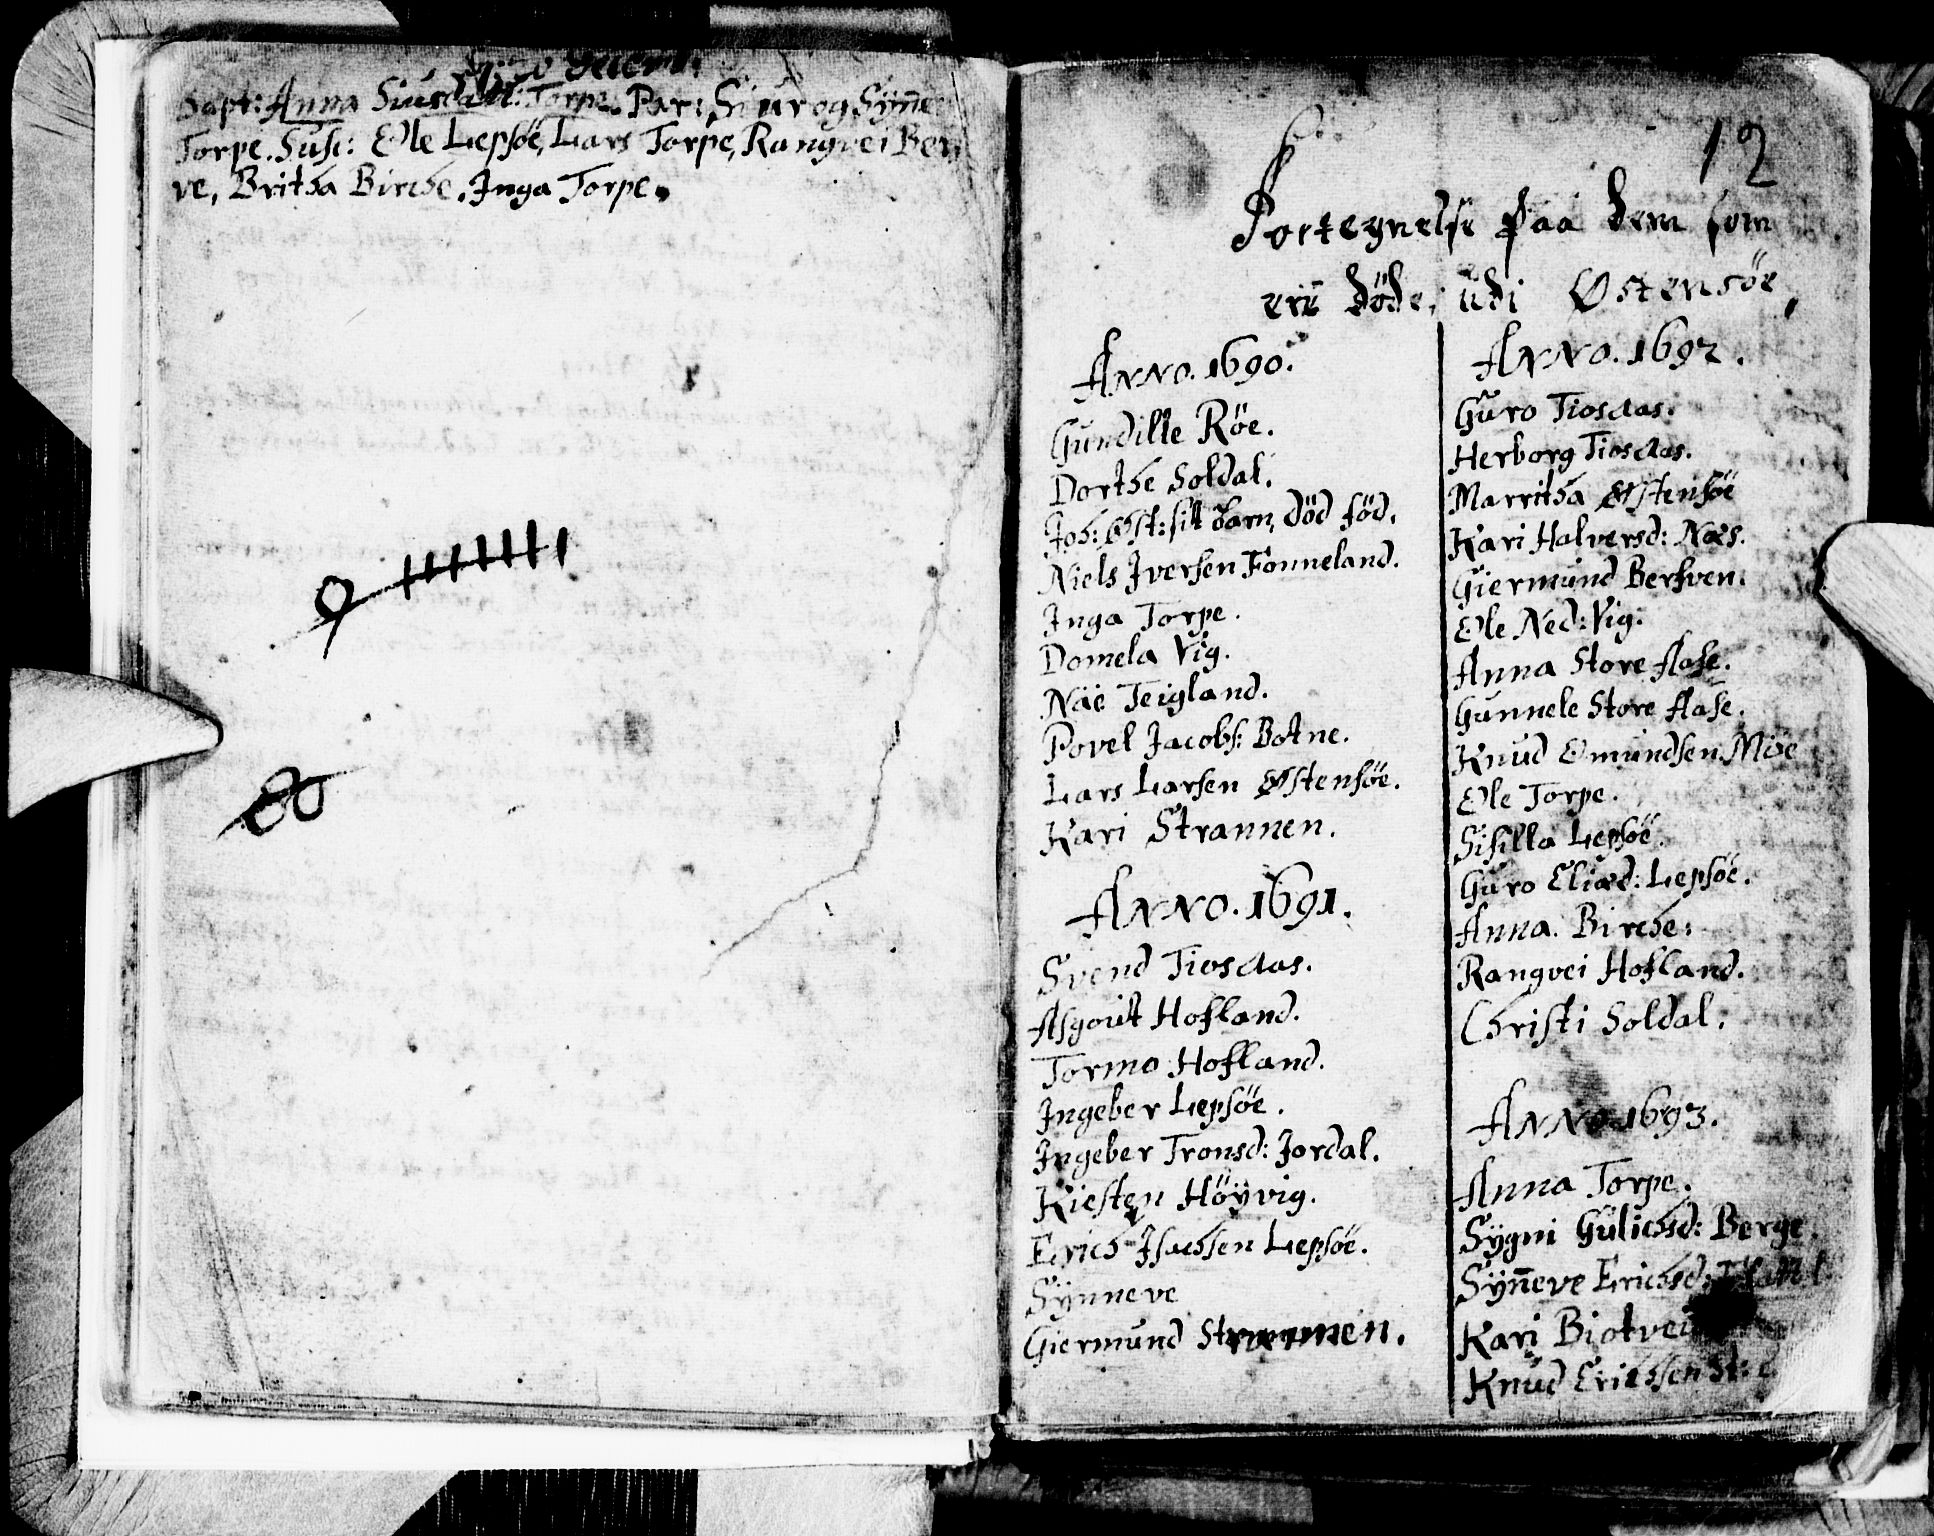 Bapt: Anna Siursdatt: Torpe. Par: Siur og Sÿn̄e
Torpe. Susc: Ole Lepsöe, Lars Torpe, Rangvei Ber,
ve, Britha Birche. Inga Torpe.
12
Fortegnelse paa dem som
erü döde, üdi Østensöe,
Anno. 1690.
Gundille Röe.
Dorthe Soldal.
Joh: Øst: sit barn, död föd.
Niels Jversen Fonneland.
Inga Torpe.
Domela Vig.
Näe Teigland.
Povel Jacobs: Botne.
Lars Larsen Østensöe.
Kari Strannen.
Anno. 1691.
Svend Tiosaas.
Asgout Hofland.
Tormo Hofland.
Ingeber Lepsöe.
Ingeber Tronsd: Jordal.
Kiesten Höÿvig.
Erich Isachsen Lepsöe.
Sÿnneve
Giermund
Anno. 1692.
Guro Tiosaas.
Herborg Tiosaas.
Marritha Østensöe
Kari Halversd: Næs.
Giermund Berfven.
Ole Ned: Vig.
Anna Store Aase.
Gunnele Store Aase.
Knud Omundsen Möe
Ole Torpe.
Sisilla Lepsöe.
Guro Eliæd: Lepsöe.
Anna. Birche.
Rangvei Hofland.
Christi Soldal.
Anno 1693.
Anna Torpe.
Sÿgni Gulichsd: Berge.
Sÿn̄eve Erichsd:
Kari Biotvei
Knud Erichsen St: